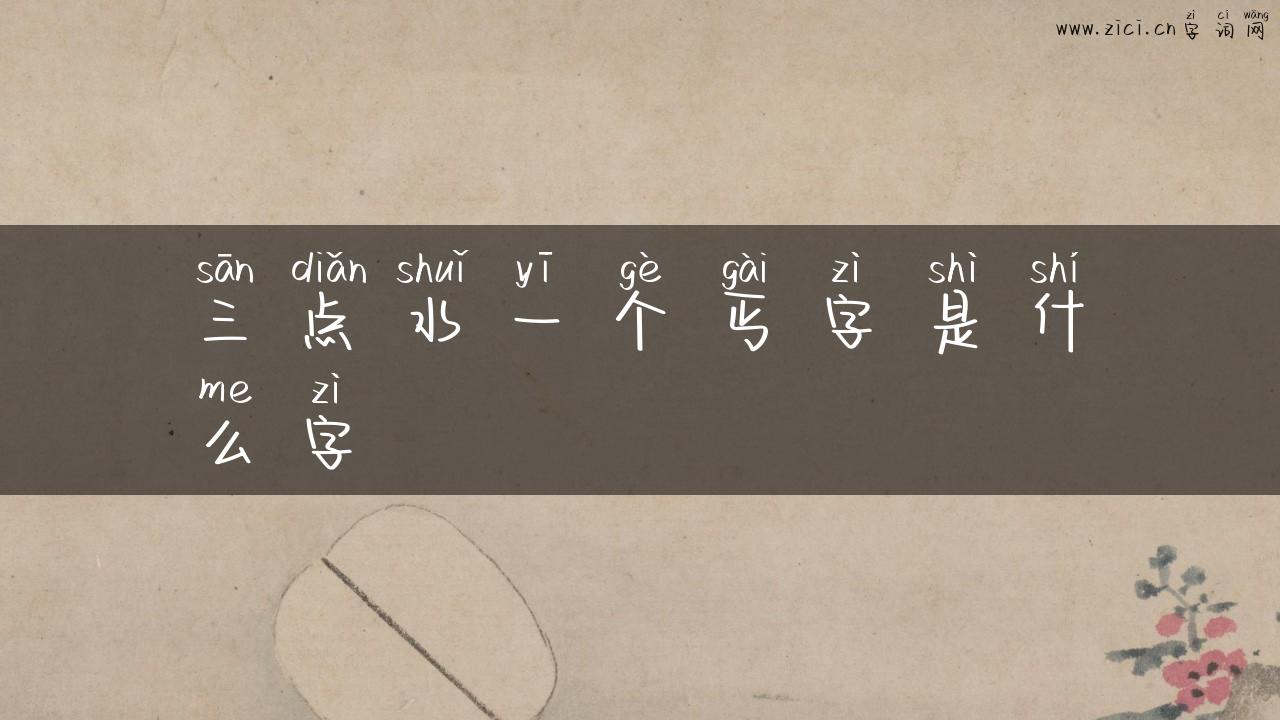 zì cí wǎng
www.zici.cn 字 词 网
sān diǎn shuǐ yī gè gài zì shì shí
三 点 水 一 个 丐 字 是 什
me zì
么 字